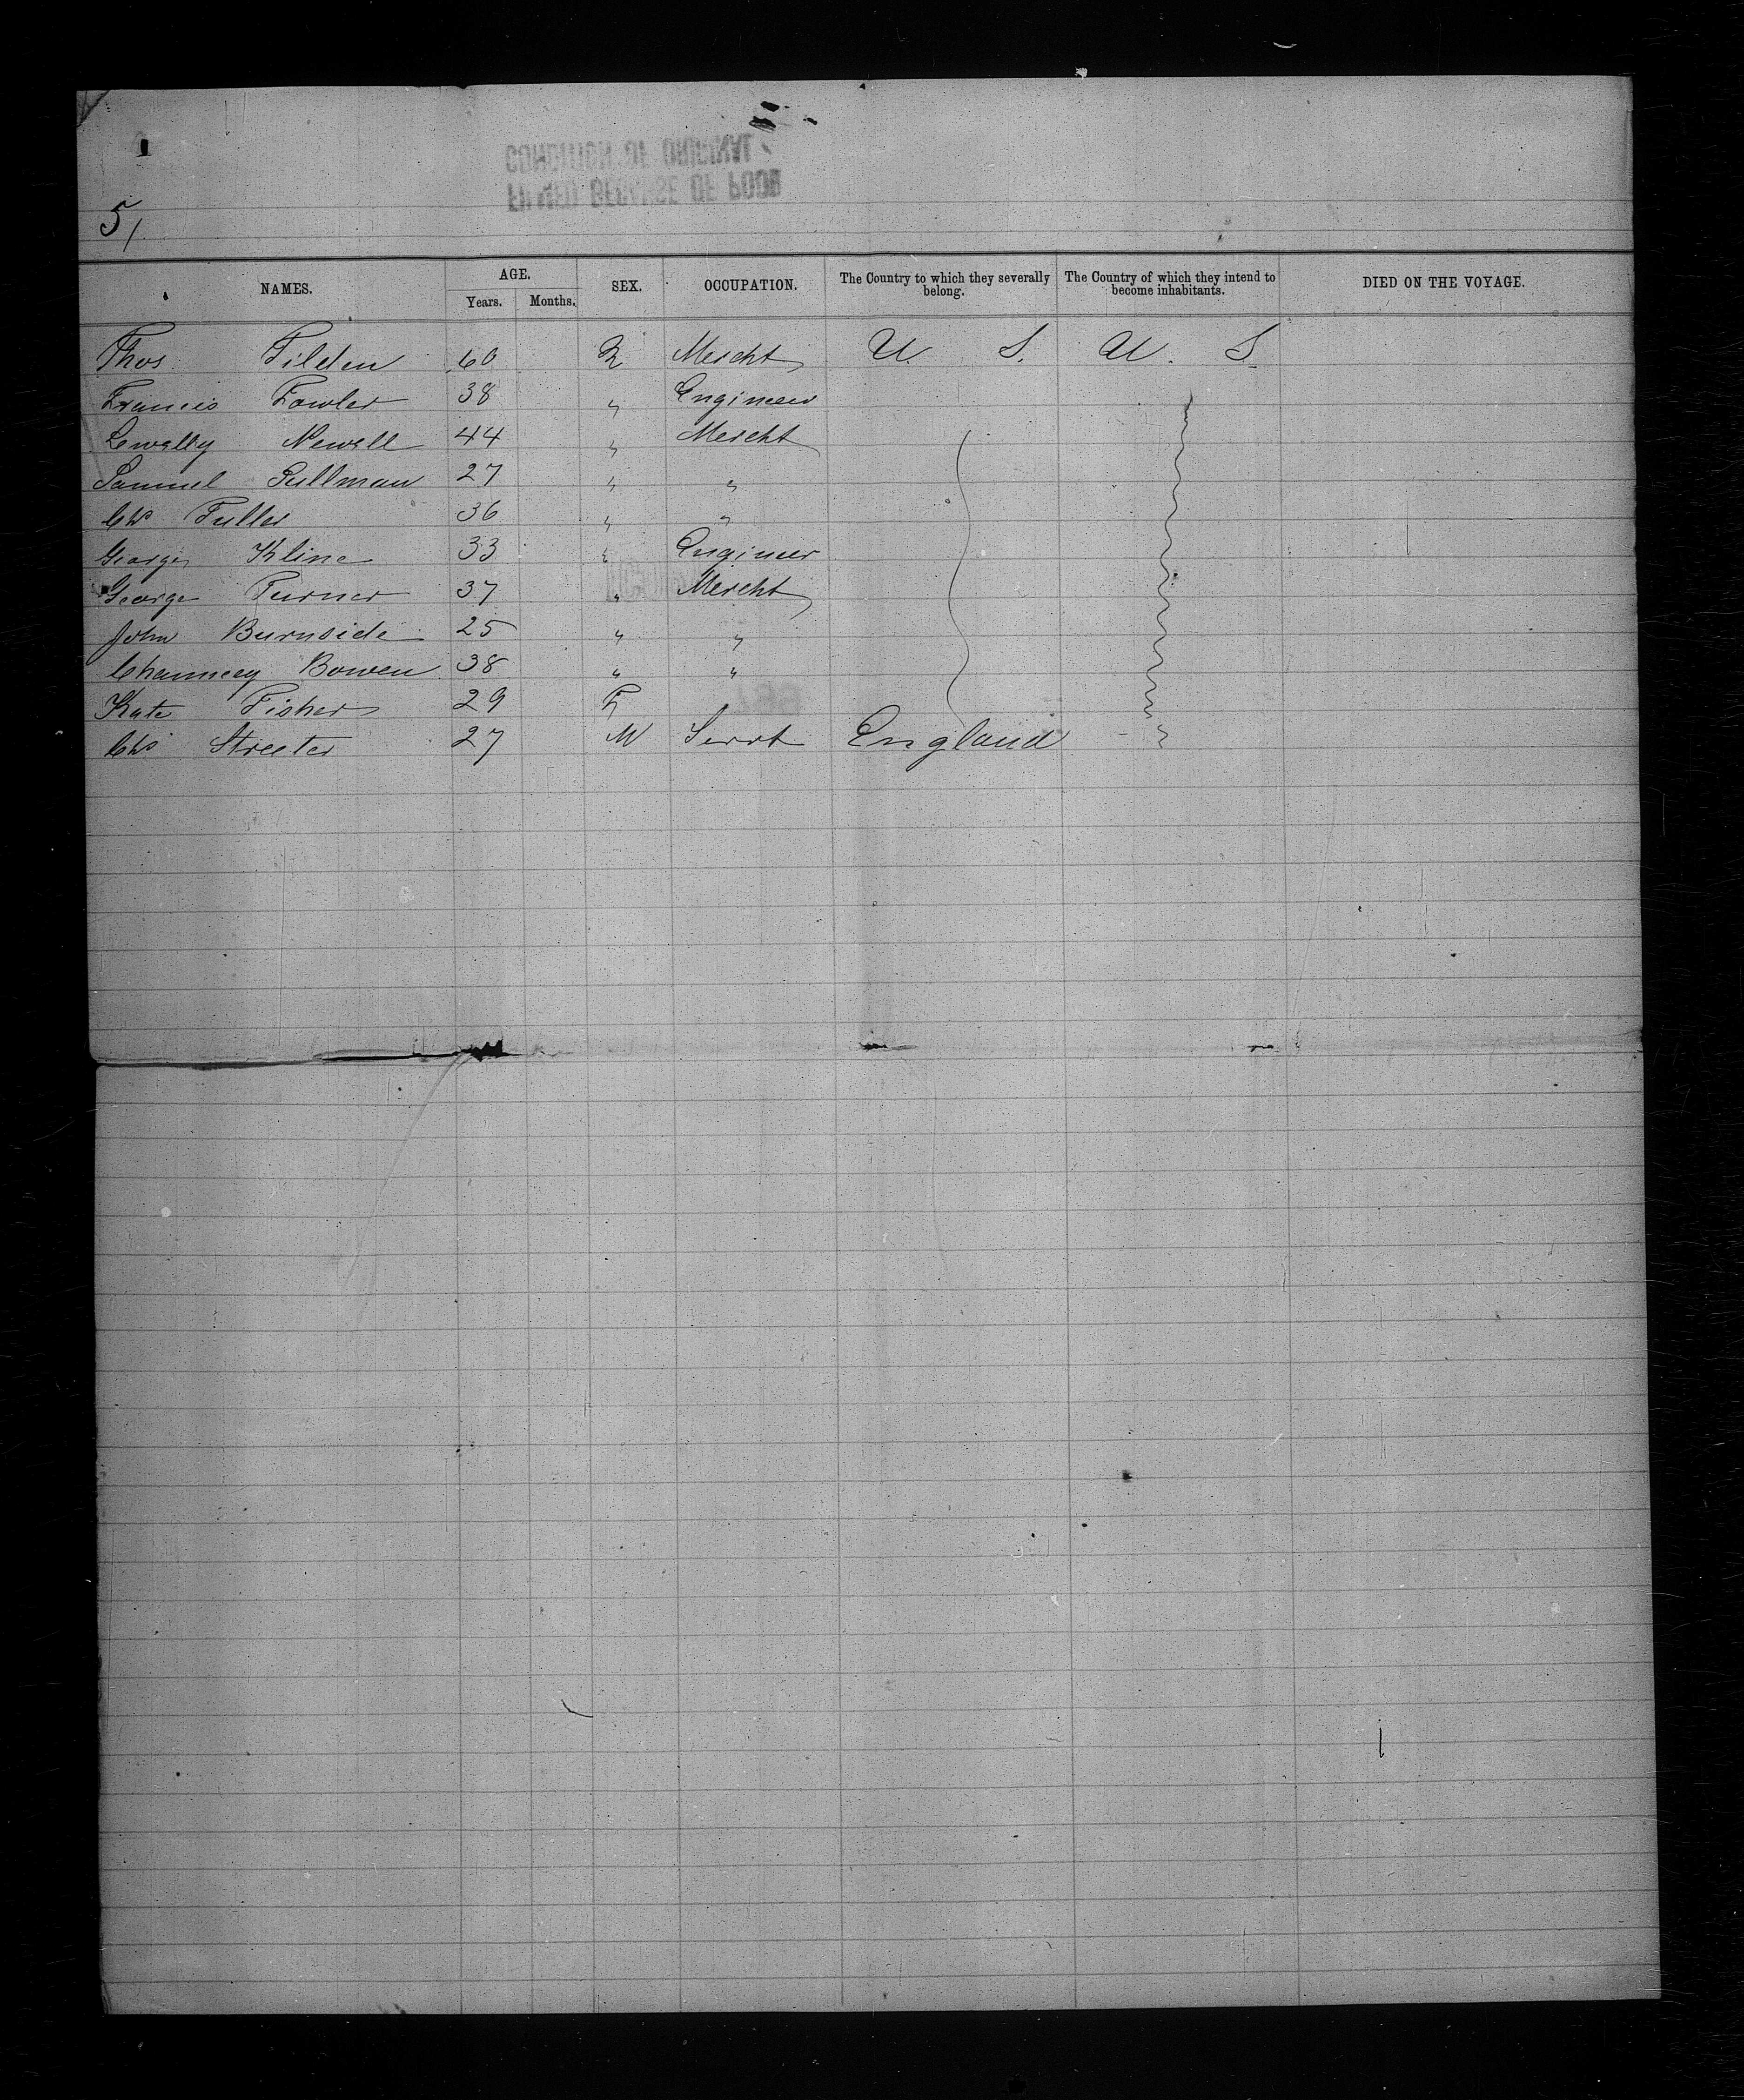 5/
NAMES. AGE. Years. Months. SEX. OCCUPATION. The Country to which they severally belong. The Country of which they intend to become inhabitants. DIED ON THE VOYAGE.
Thos Tilden 60 Mercht U. S. U. S
Francis Fowler 38 " Engineer
Newell 44 " Mercht
Samuel Pullman 27 " "
Chs Fuller 36 " "
George Kline 33 " Engineer
George Turner 37 " Mercht
John Burnside 25 " "
Chauncey Bowen 38 " "
Kate Fisher 29 F
Chs Streeter 27 M Servt England